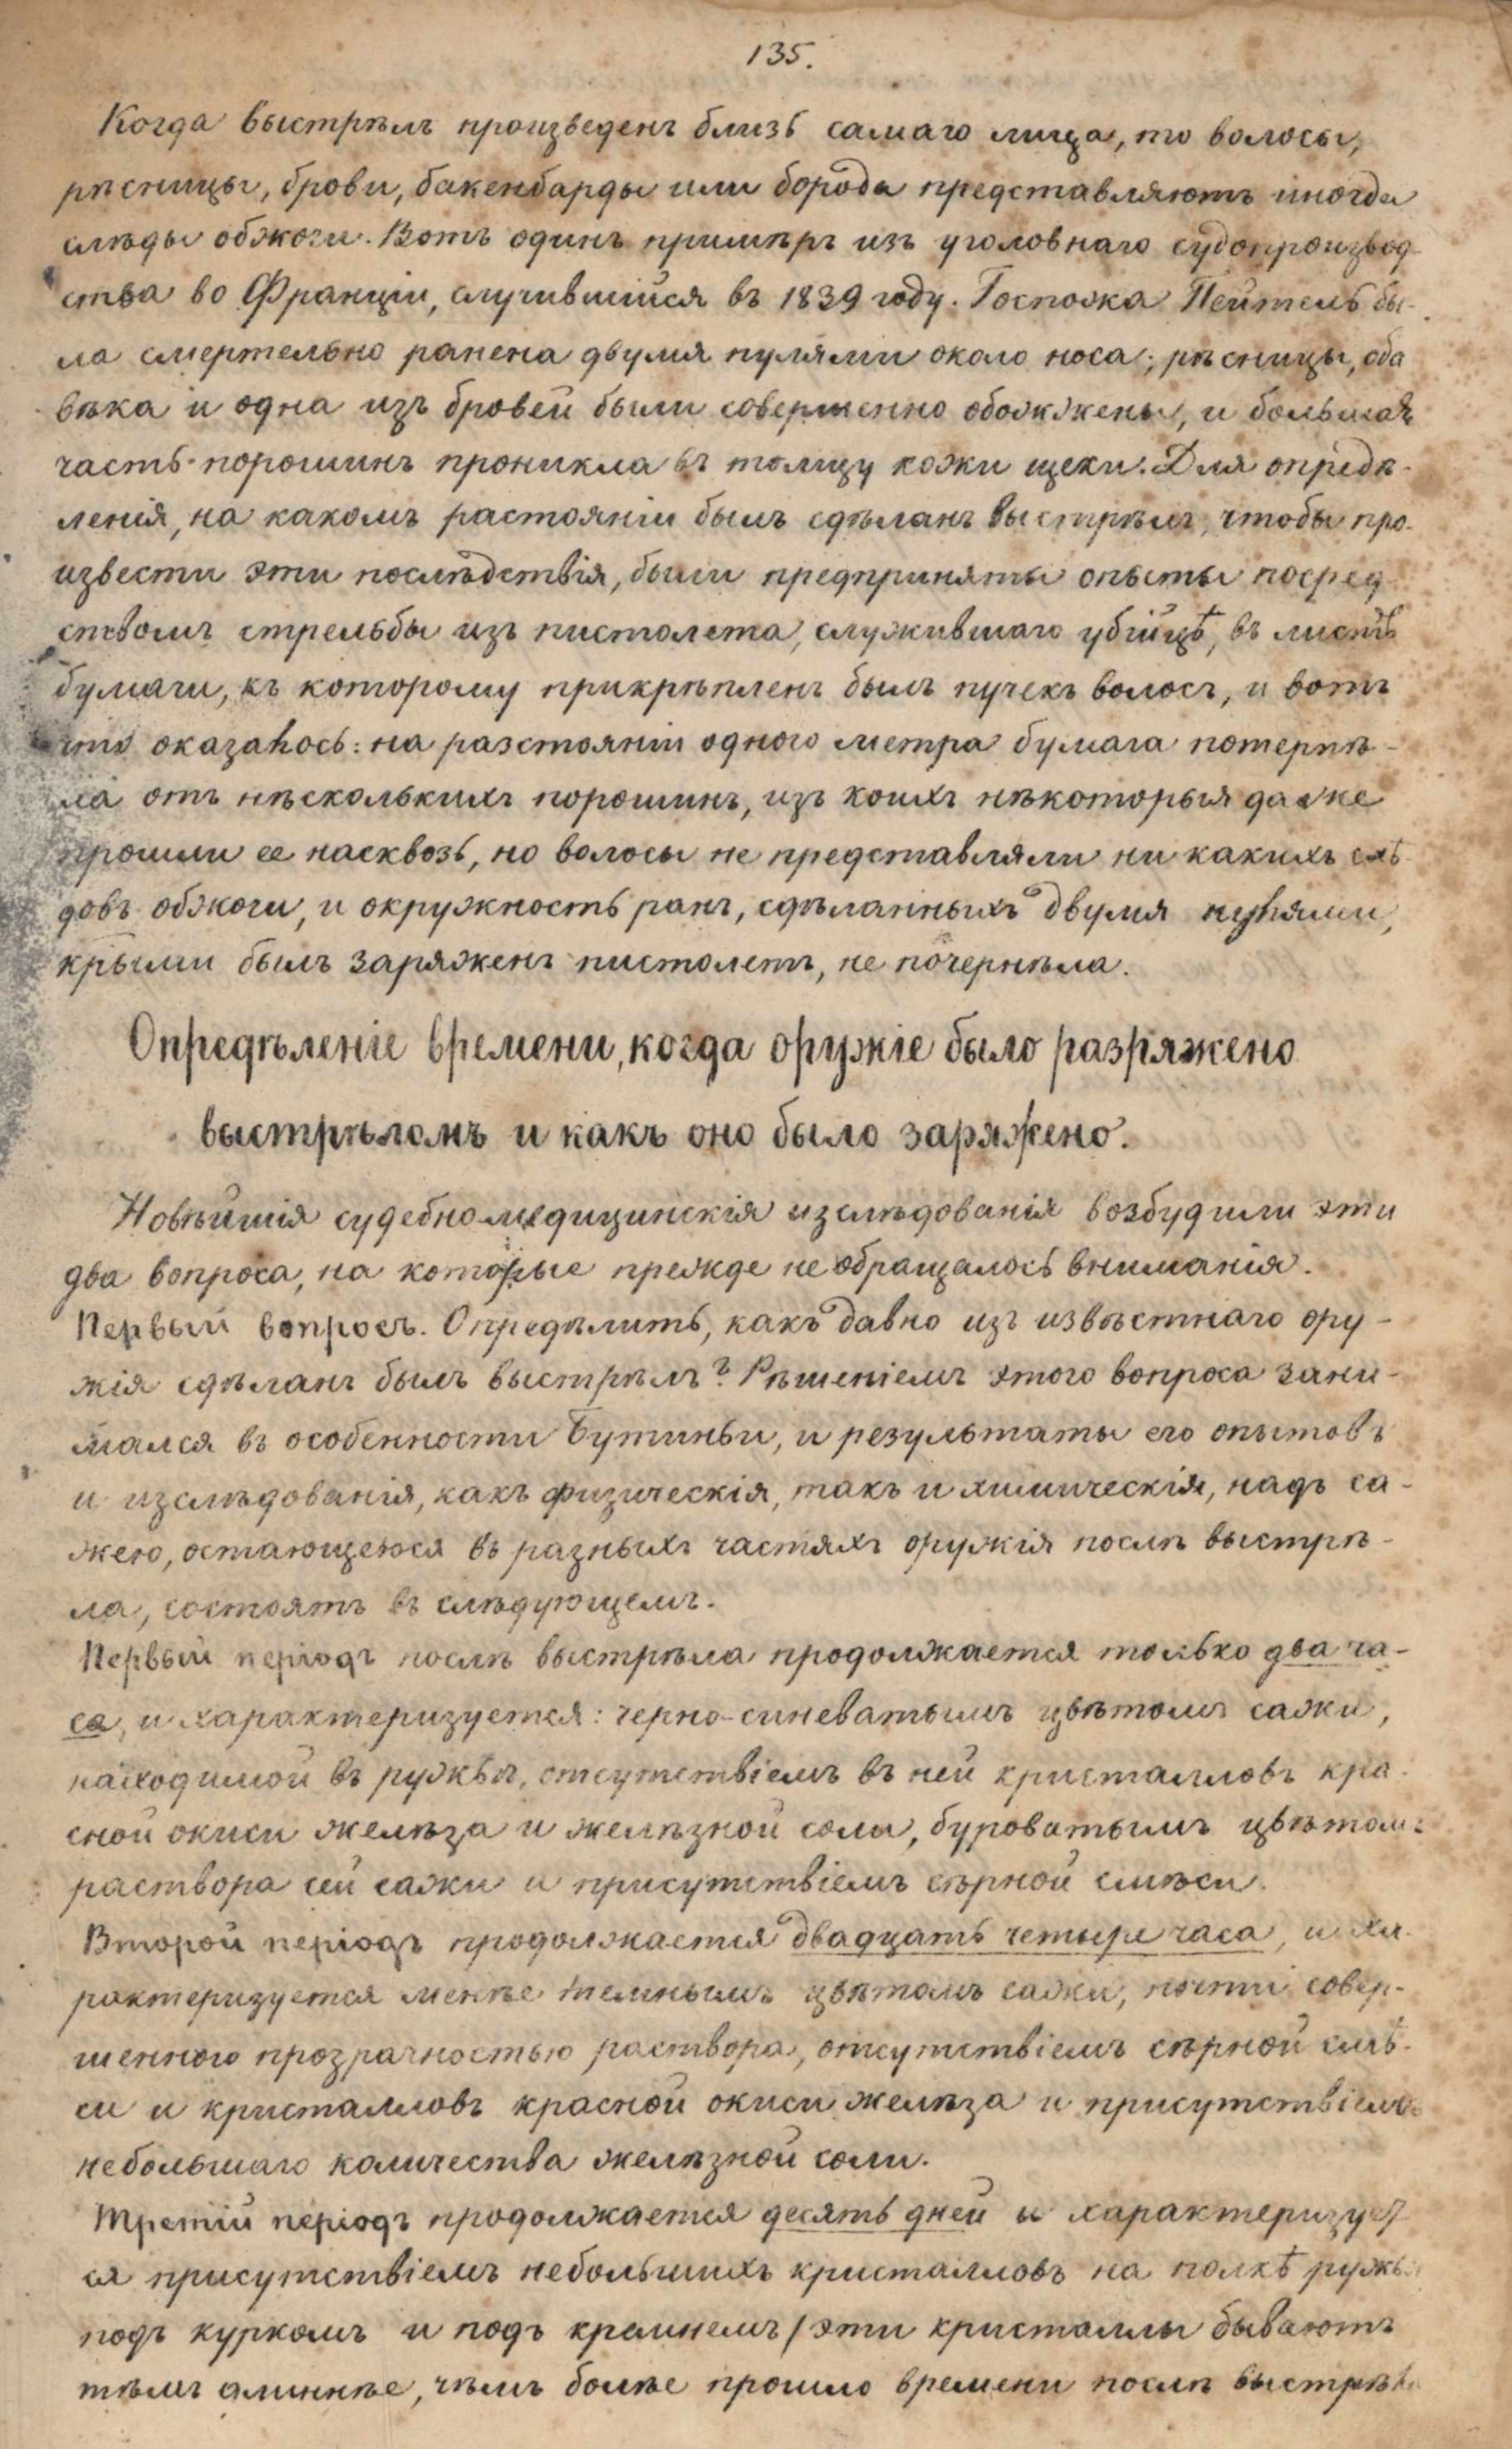 135.
Когда выстрѣлъ произведенъ близь самаго лица, то волосы,
рѣсницы, брови, бакенбарды или борода представляютъ иногда
слѣды обжоги. Вотъ одинъ примѣръ изъ уголовнаго судопроизвод-
ства во Франціи, случившійся въ 1839 году. Госпожа Пейтель бы-
ла смертельно ранена двумя пулями около носа; рѣсницы, оба
вѣка и одна изъ бровей были совершенно обожжены, и большая
часть порошинъ проникла въ толщу кожи щеки. Для опредѣ-
ленія, на какомъ растояніи былъ сдѣланъ выстрѣлъ, чтобы про-
извести эти послѣдствія, были предприняты опыты посред-
ствомъ стрельбы изъ пистолета, служившаго убійцѣ, въ листъ
бумаги, къ которому прикрѣпленъ былъ пучекъ волосъ, и вотъ
что оказалось: на разстояніи одного метра бумага потерпѣ-
ла отъ нѣсколькихъ порошинъ, изъ коихъ нѣкоторыя даже
прошли ее насквозь, но волосы не представляли ни какихъ слѣ-
довъ обжоги, и окружность ранъ, сдѣланныхъ двумя пулями,
крыми былъ заряженъ пистолетъ, не почернѣла.
Опредѣленіе времени, когда оружіе было разряжено
выстрѣломъ и какъ оно было заряжено.
Новѣйшія судебно-медицинскія изслѣдованія возбудили эти
два вопроса, на которые прежде не обращалось вниманія.
Первый вопросъ. Опредѣлить, какъ давно изъ извѣстнаго ору-
жія сдѣланъ былъ выстрѣлъ? Рѣшеніемъ этого вопроса зани-
мался въ особенности Бутиньи, и результаты его опытовъ
и изслѣдованія, какъ физическія, такъ и химическія, надъ са-
жею, остающеюся въ разныхъ частяхъ оружія послѣ выстрѣ-
ла, состоятъ въ слѣдующемъ.
Первый періодъ послѣ выстрѣла продолжается только два ча-
са, и характеризуется: черно-синеватымъ цвѣтомъ сажи,
находимой въ ружьѣ, отсутствіемъ въ ней кристалловъ кра-
сной окиси желѣза и желѣзной соли, буроватымъ цвѣтомъ
раствора сей сажи и присутствіемъ сѣрной смѣси.
Второй періодъ продолжается двадцать четыре часа, и ха-
рактеризуется менѣе темнымъ цвѣтомъ сажи, почти совер-
шенною прозрачностью раствора, отсутствіемъ сѣрной смѣ-
си и кристалловъ красной окиси желѣза и присутствіемъ
небольшаго количества желѣзной соли.
Третій періодъ продолжается десять дней и характеризует
ся присутствіемъ небольшихъ кристалловъ на полкѣ ружья
подъ куркомъ и подъ кремнемъ (эти кристаллы бываютъ
тѣмъ длиннѣе, чѣмъ болѣе прошло времени послѣ выстрѣла